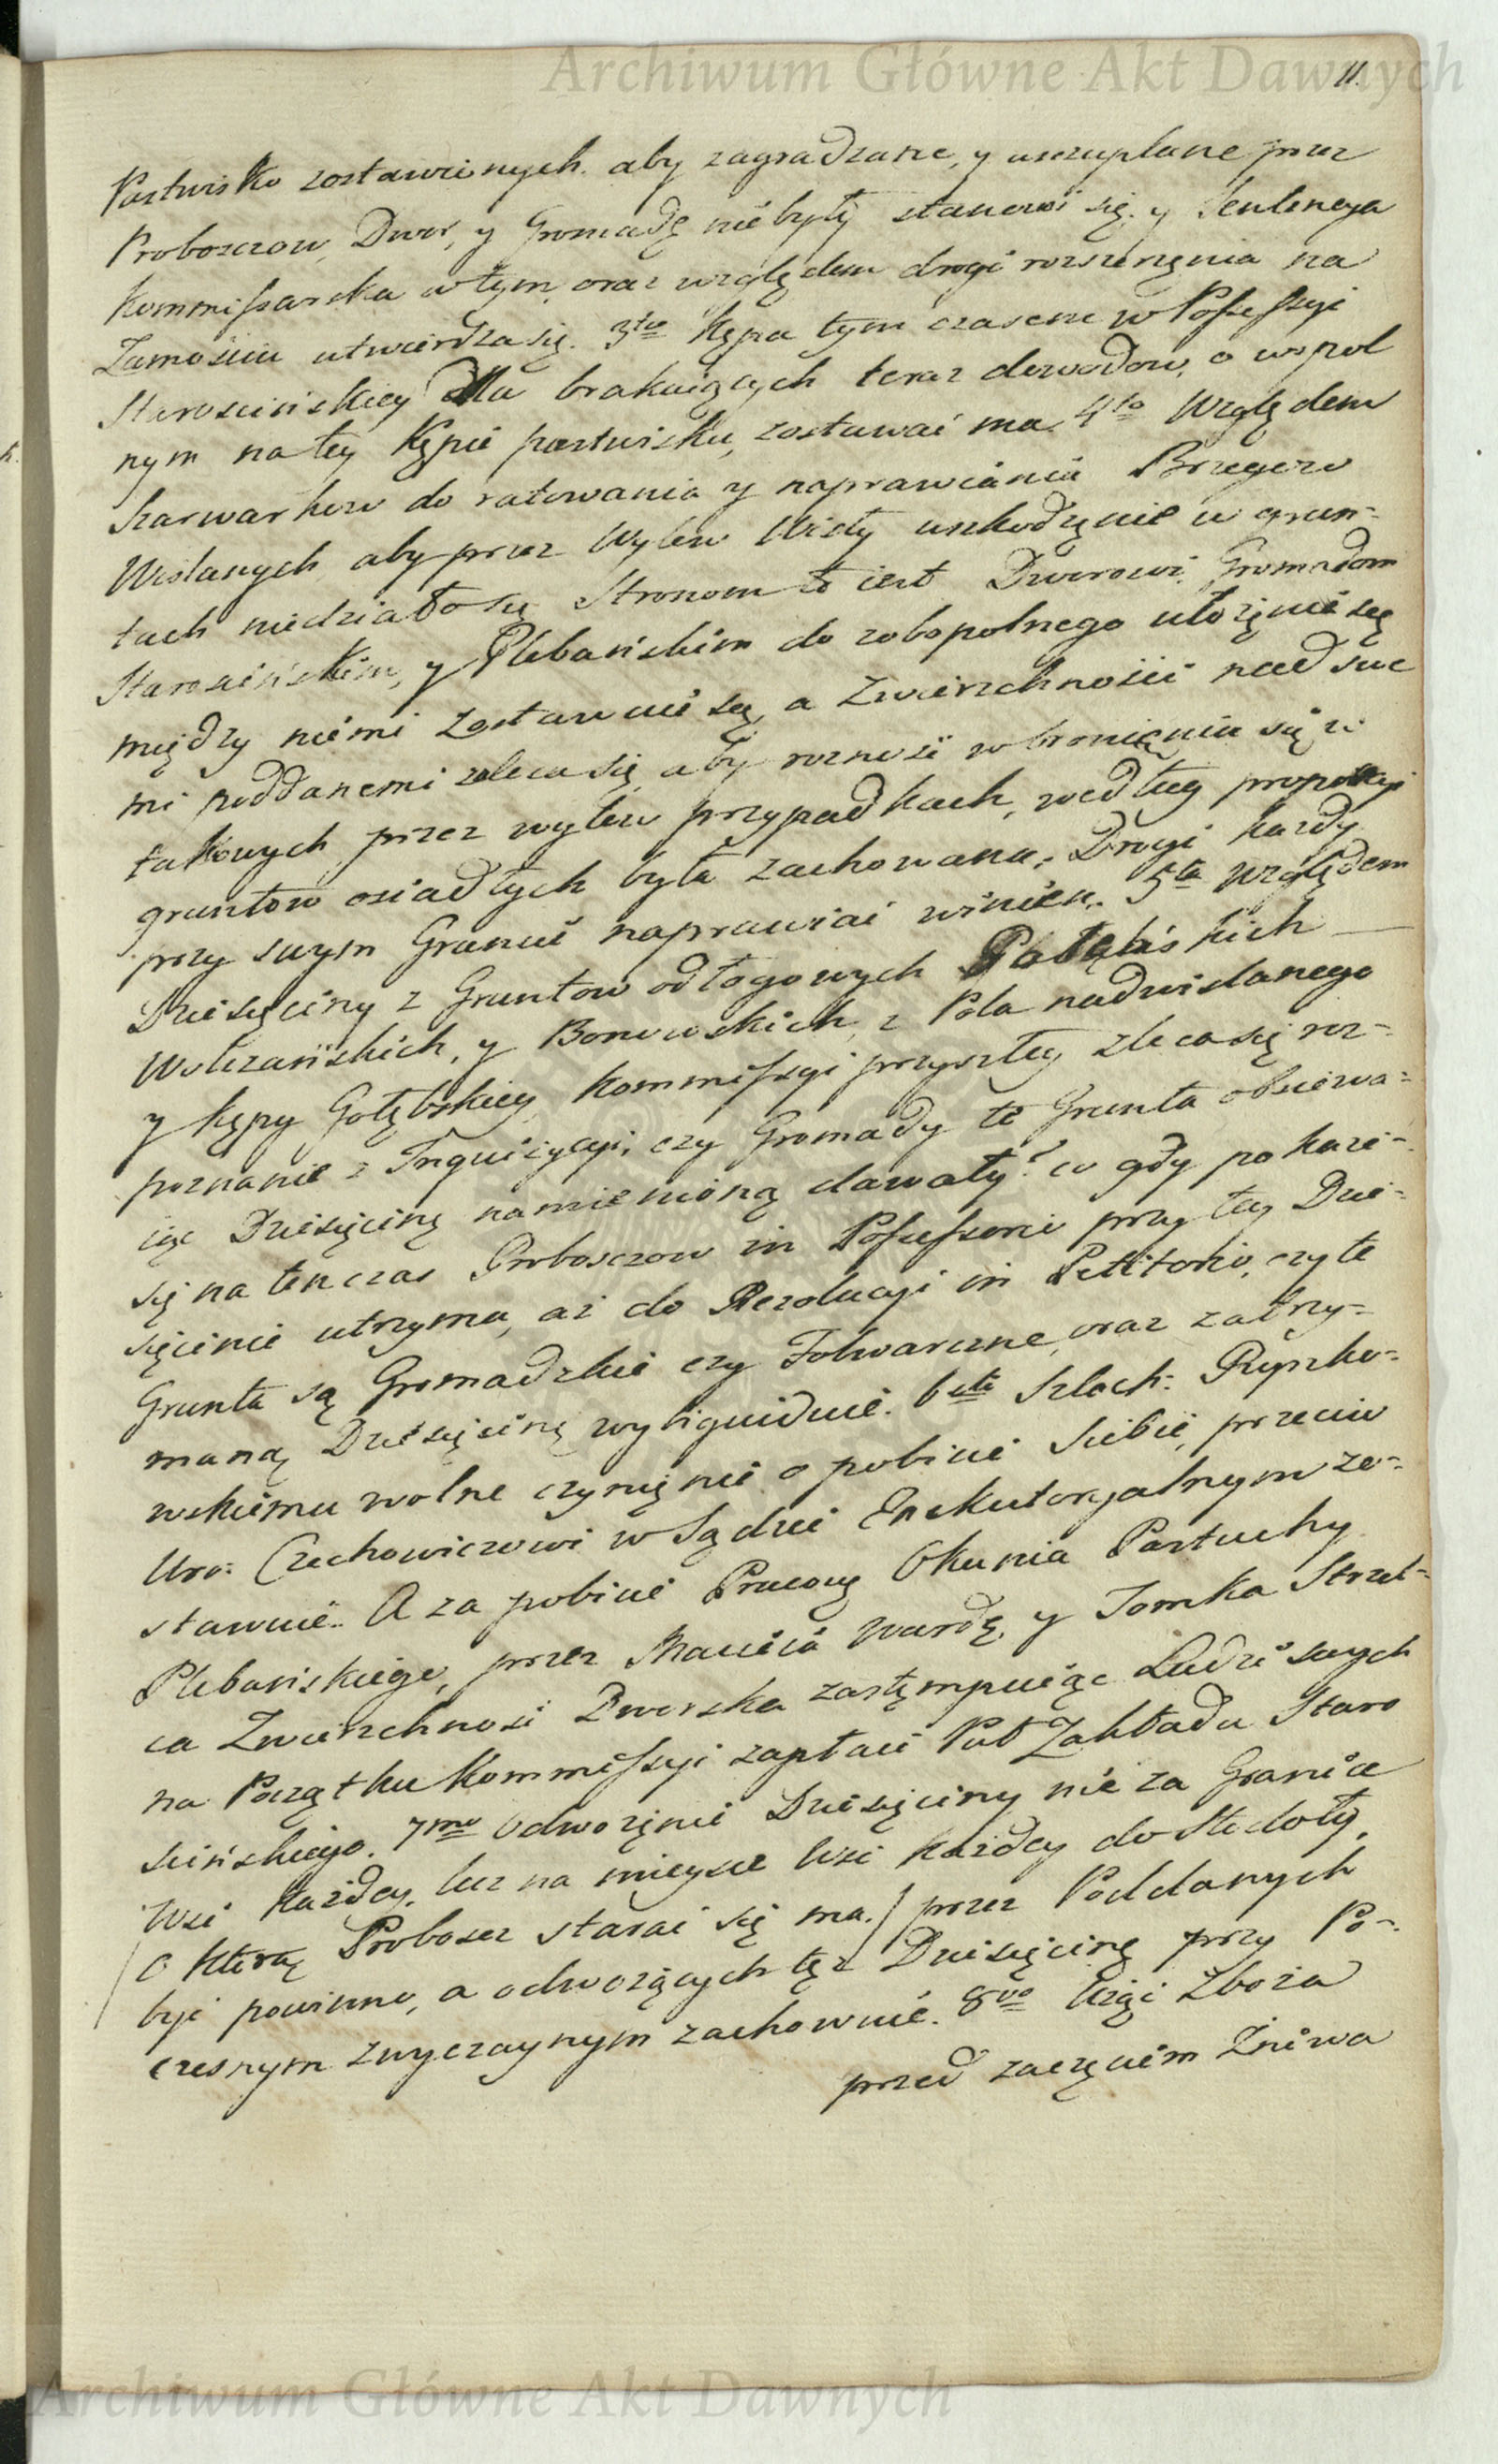 Archiwum Główne Akt Dawnych
11.
Pastwisko zostawionych. aby zagradzane, y uszczuplane przez
Proboszczow, Dwor, y Gromadę nie były stanowi się. y Sentencya
Kommissarska w tym, oraz względem drogi rozszerzęnia na
Zamościu utwierdza się. 3tio Kępa tym czasem w Possessyi
Starościńskiey dla brakuiących teraz dowodow, o wspol
nym na tey Kępie pastwisku, zostawać ma. 4to Względem
Szarwarkow do ratowania y naprawiania Brzegow
Wislanych, aby przez Wylew Wisły uszkodzęnie w grun-
tach niedziało się Stronom to iest Dworowi, Gromadom
Starościńskim, y Plebańskim do zobopolnego ułożęnie się
między niemi zostawuie się, a Zwierzchności nad swe
mi poddanemi zaleca się, aby rozność w bronięniu się w
takowych przez wylew przypadkach, według proporcyi
gruntow osiadłych była zachowana; Drogi każdy
przy swym Gruncie naprawiać winien. 5to Względem
Dziesięciny z Gruntow odłogowych Gołębskich
Wolczańskich, y Bonowskich, z Pola nadwislanego
y Kępy Gołębskiey, Kommissyi przyszłey zleca się roz-
poznanie z Inquizycyi, czy Gromady te Grunta obsiewa-
iąc Dziesięcinę namienioną dawały? co gdy pokaże-
się na ten czas Proboszczow in Possessorio przy tey Dzie-
sięcinie utrzyma, aż do Rezolucyi in Petitorio, czy te
Grunta są Gromadzkie czy Folwarczne, oraz zatrzy-
maną Dziesięcinę wyliguiduie. 6to Szlach: Ryszko-
wskiemu wolne czynięnie o pobicie Siebie, przeciw
Uro: Czechowiczowi w Sądzie Exekutoryalnym zo-
stawuie. A za pobicie Pracow. Okunia Pastuchy
Plebańskiego, przez Macieia Wardę, y Tomka Strzel-
ca Zwierzchność Dworska zastęmpuiąc Ludzi swych
na Początku Kommissyi zapłaci Pod Zakładu Staro
scińskiego. 7mo Odwozięnie Dziesięciny nie za Granice
Wsi każdey, lecz na mieysce Wsi każdey do Stodoły,
/ O którą Proboszcz starać się ma. / przez Poddanych
być powinno, a odwozących tęż Dziesięcinę przy Po-
czesnym zwyczaynym zachowuie. 8vo Urząd Zboża
przed zaczęciem Żniwa
Archiwum Główne Akt Dawnych